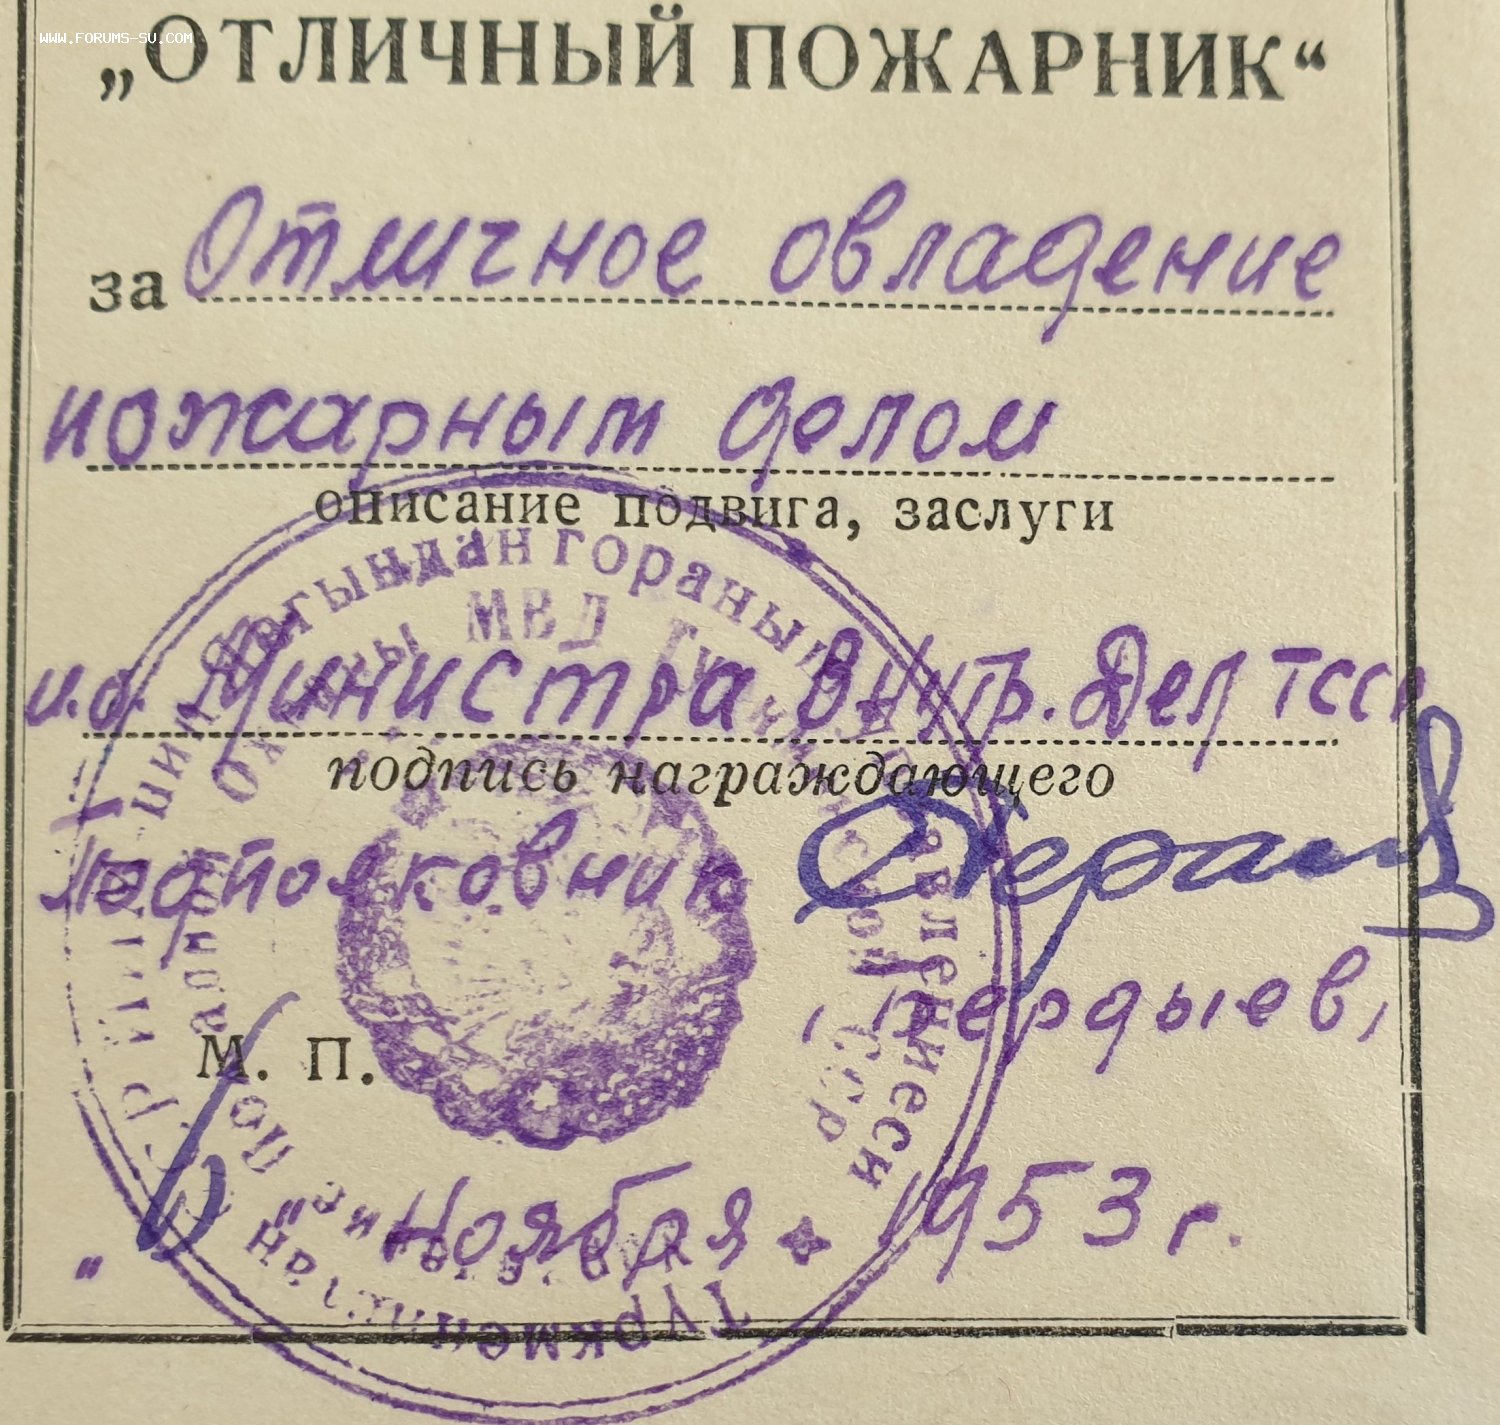 WWW.FORUMS-SU.COM
„ОТЛИЧНЫЙ ПОЖАРНИК“
за Отличное овладение
пожарным делом
описание подвига, заслуги
и.о. Министра Внутр. Дел ТССР
подпись награждающего
подполковник
Бердыев
М. П.
„6" Ноября 1953 г.
янгындан гораныш
Охраны МВД
Управление Пожарной
ССР
Туркменистан